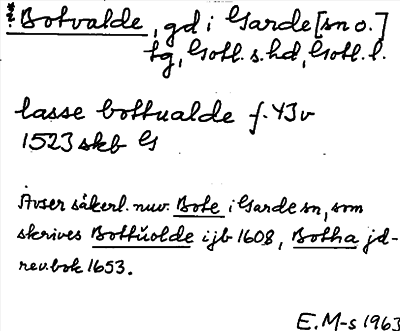 *Botvalde, gd i Garde [sn o.]
tg, Gotl. s. hd, Gotl. l.
lasse bottualde f. 43v
1523 skb G
Avser säkerl. nuv. Bote i Garde sn, som
skrives Bottŭolde i jb 1608, Botha jd-
rev.bok 1653.
E. M-s 1963